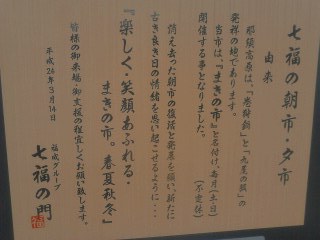 七福の朝市・夕市
由来
那須高原は、「巻狩鍋」と「九尾の狐」の
発祥の地であります。
当市は、『まきの市』と名付け、毎月(土・日)
開催する事となりました。
(不定休)
消え去った朝市の復活と発展を願い、新たに
古き良き日の情緒を思い起こせるように・・・
『楽しく・笑顔あふれる・
まきの市。春夏秋冬』
皆様の御来場・御支援の程宜しくお願い致します。
平成26年3月14日
福成グループ
七福の門